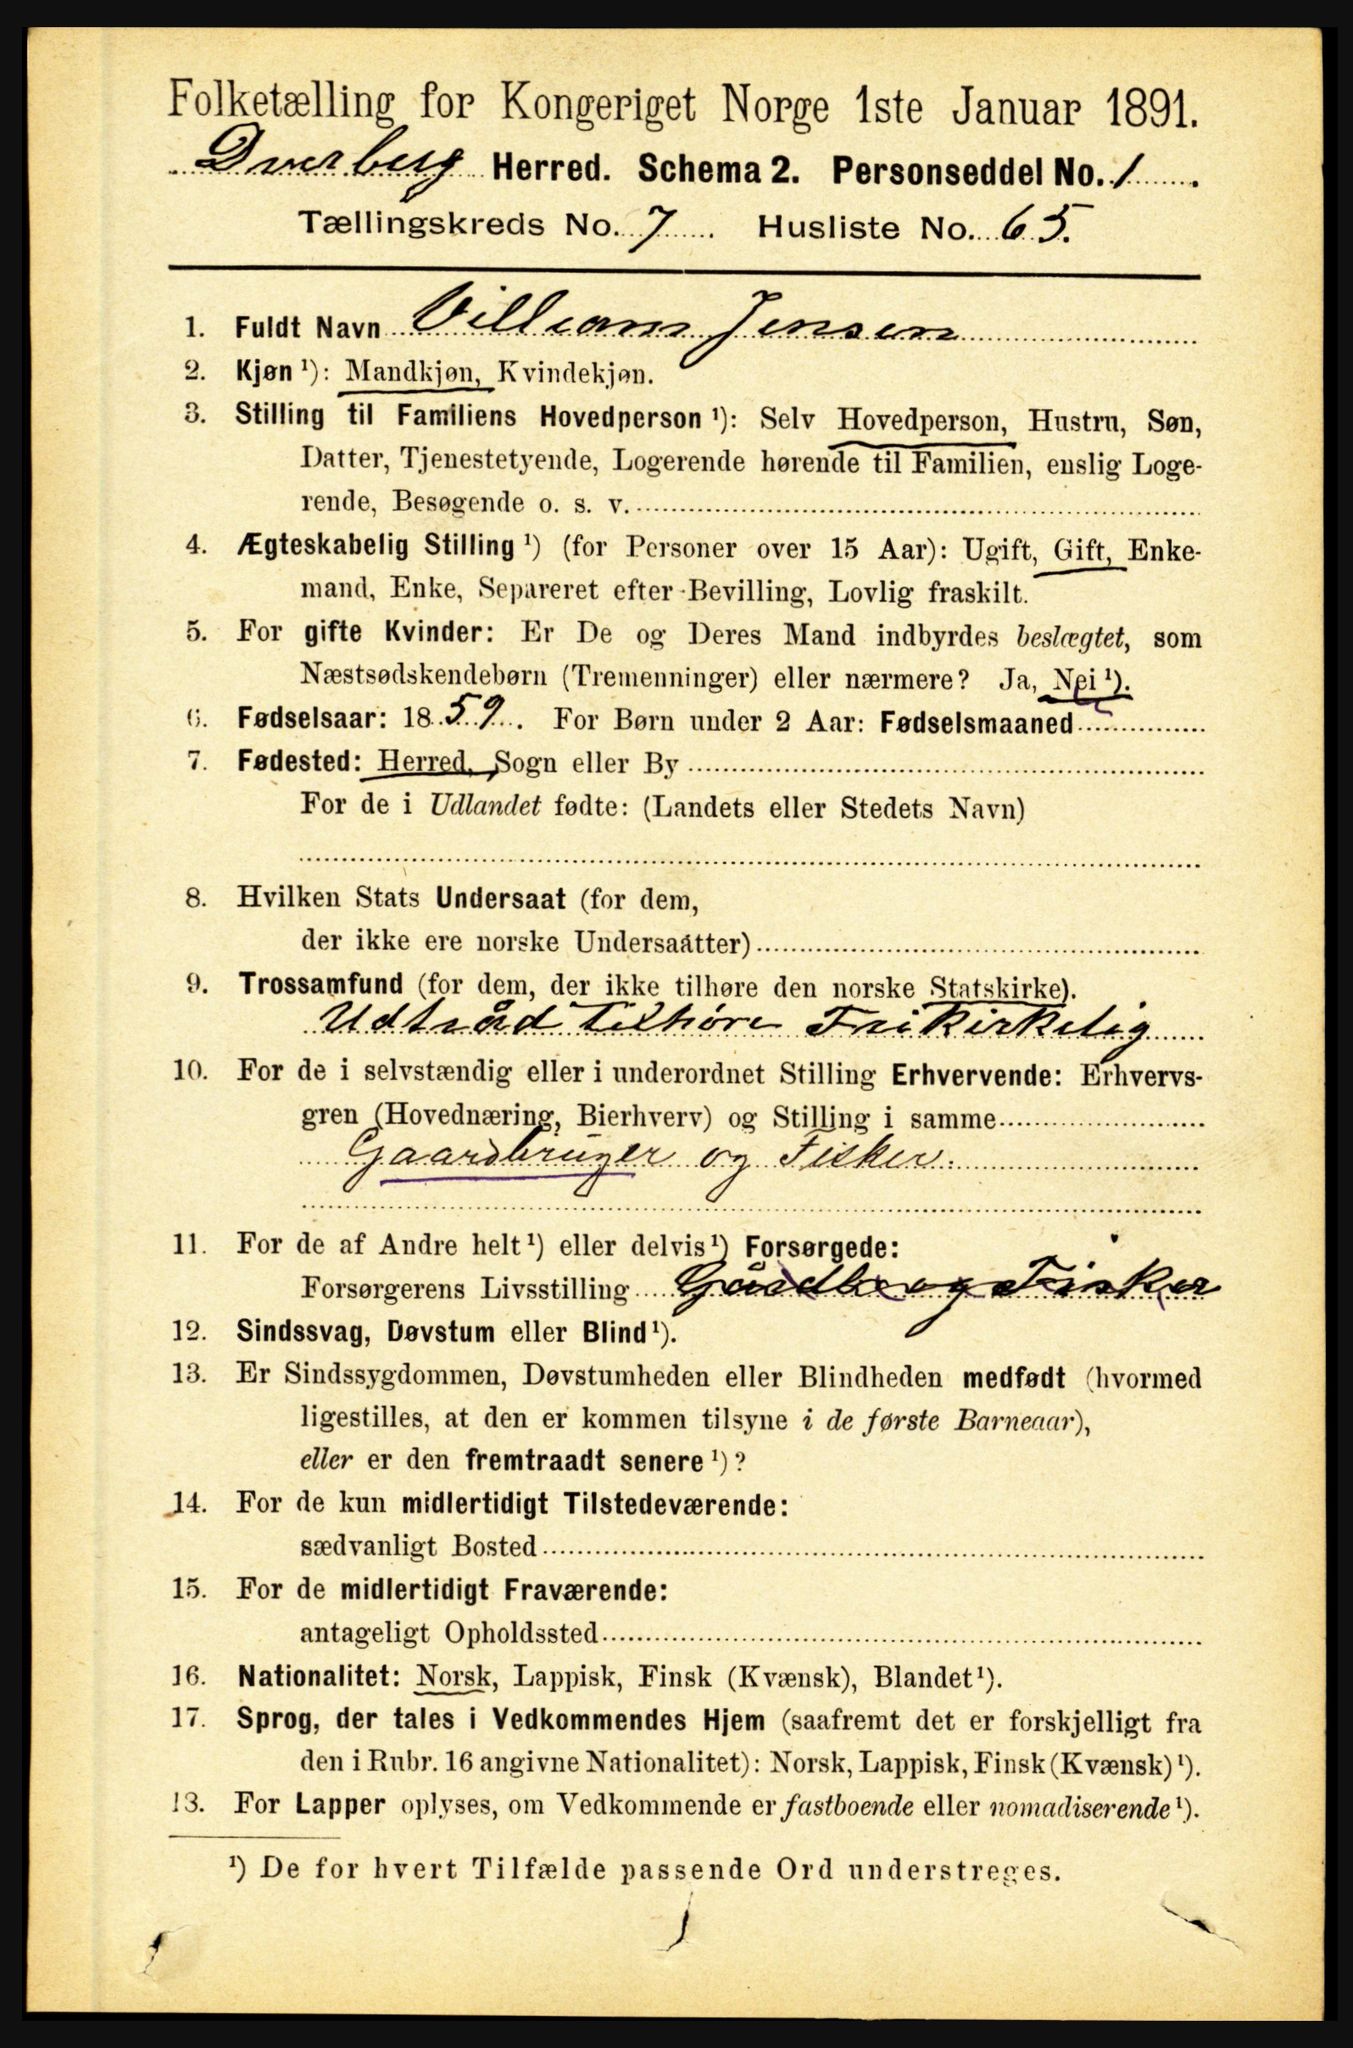 Folketælling for Kongeriget Norge 1ste Januar 1891.
Dverberg Herred. Schema 2. Personseddel No. 1
Tællingskreds No. 7 Husliste No. 65.
1. Fuldt Navn Villiam Jensen
2. Kjøn ¹): Mandkjøn, Kvindekjøn.
3. Stilling til Familiens Hovedperson ¹): Selv Hovedperson, Hustru, Søn,
Datter, Tjenestetyende, Logerende hørende til Familien, enslig Loge-
rende, Besøgende o. s. v.
4. Ægteskabelig Stilling ¹) (for Personer over 15 Aar): Ugift, Gift, Enke-
mand, Enke, Separeret efter Bevilling, Lovlig fraskilt.
5. For gifte Kvinder: Er De og Deres Mand indbyrdes beslægtet, som
Næstsødskendebørn (Tremenninger) eller nærmere? Ja, Nei ¹).
6. Fødselsaar: 1859. For Børn under 2 Aar: Fødselsmaaned
7. Fødested: Herred, Sogn eller By
For de i Udlandet fødte: (Landets eller Stedets Navn)
8. Hvilken Stats Undersaat (for dem,
der ikke ere norske Undersaatter)
9. Trossamfund (for dem, der ikke tilhøre den norske Statskirke).
Udtråd tilhøre Frikirkelig
10. For de i selvstændig eller i underordnet Stilling Erhvervende: Erhvervs-
gren (Hovednæring, Bierhverv) og Stilling i samme
Gaardbruger og Fisker.
11. For de af Andre helt ¹) eller delvis ¹) Forsørgede:
Forsørgerens Livsstilling Gårdbr og Fisker
12. Sindssvag, Døvstum eller Blind ¹).
13. Er Sindssygdommen, Døvstumheden eller Blindheden medfødt (hvormed
ligestilles, at den er kommen tilsyne i de første Barneaar),
eller er den fremtraadt senere ¹)?
14. For de kun midlertidigt Tilstedeværende:
sædvanligt Bosted
15. For de midlertidigt Fraværende:
antageligt Opholdssted
16. Nationalitet: Norsk, Lappisk, Finsk (Kvænsk), Blandet ¹).
17. Sprog, der tales i Vedkommendes Hjem (saafremt det er forskjelligt fra
den i Rubr. 16 angivne Nationalitet): Norsk, Lappisk, Finsk (Kvænsk) ¹).
13. For Lapper oplyses, om Vedkommende er fastboende eller nomadiserende ¹).
¹) De for hvert Tilfælde passende Ord understreges.